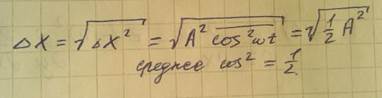 ΔX = √(ΔX²) = √(A² \overline{cos²ωt}) = √(½ A²)
среднее cos² = ½